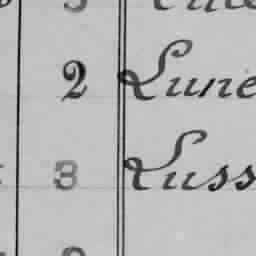 2 Lune
3 Luss